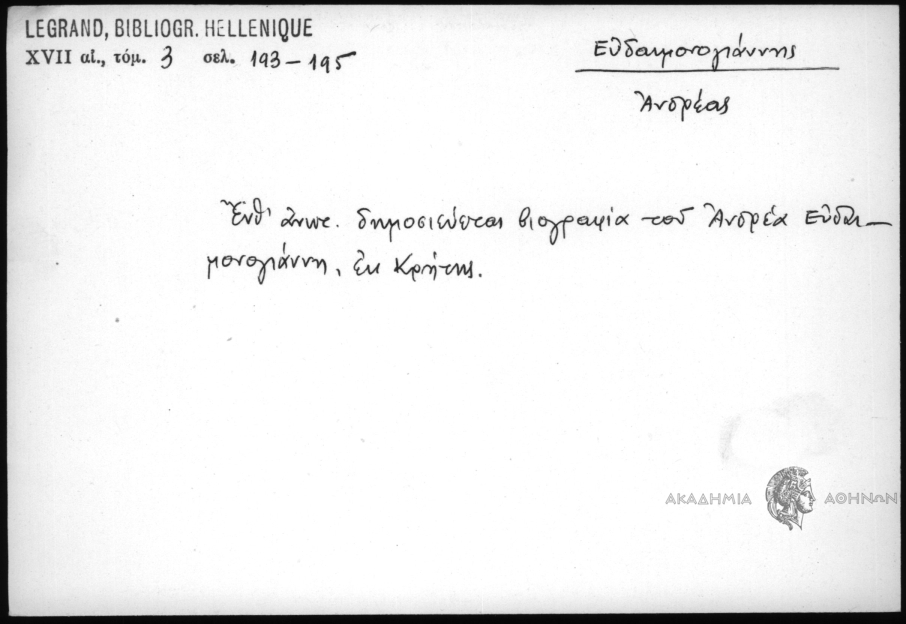 LEGRAND, BIBLIOGR. HELLENIQUE
XVII αἰ., τόμ. 3 σελ. 193-195
Εὐδαιμονογιάννης
Ἀνδρέας
Ἔνθ' ἀνωτ. δημοσιεύεται βιογραφία τοῦ Ἀνδρέα Εὐδαι-
μονογιάννη, ἐκ Κρήτης.
ΑΚΑΔΗΜΙΑ ΑΘΗΝΩΝ